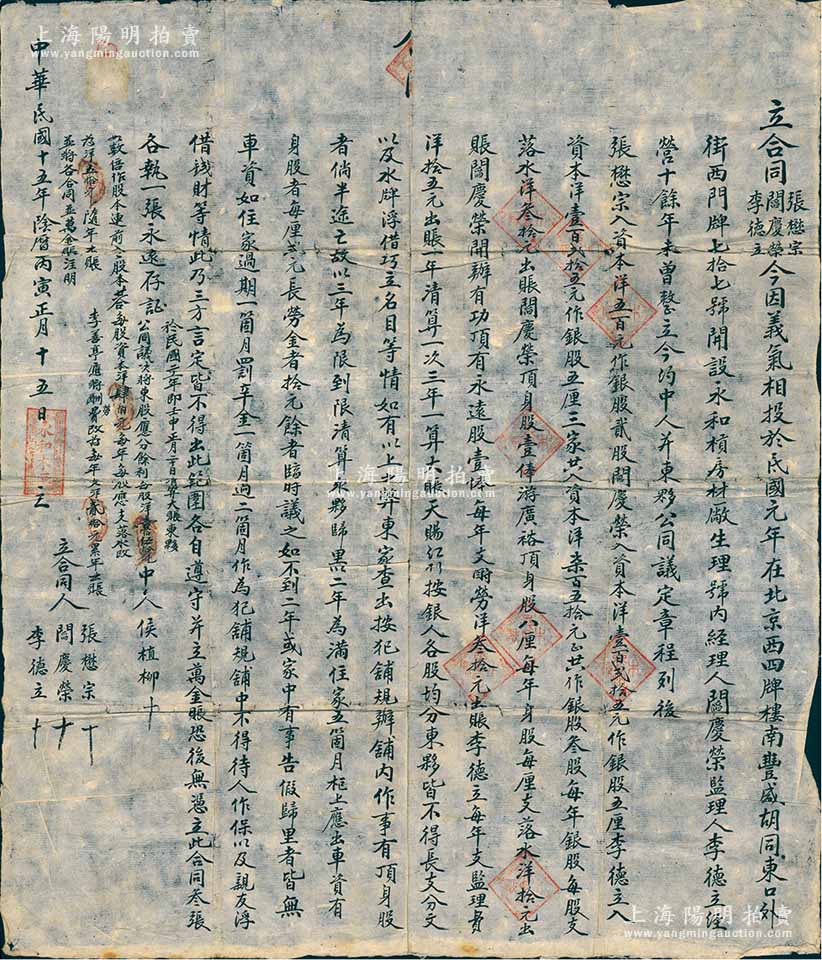 立合同張懋宗閻慶榮李德立今因義氣相投於民國元年在北京西四牌樓南豐盛胡同東口外
街西門牌七拾七號開設永和槓房材厰生理號内經理人閻慶榮監理人李德立經
營十餘年未曾整立今約中人并東夥公同議定章程列後
張懋宗入資本洋五百元作銀股貳股閻慶榮入資本洋壹百貳拾五元作銀股五厘李德立入
資本洋壹百貳拾五元作銀股五厘三家共入資本洋柒百五拾元正共作銀股叁股每年銀股每股支
落水洋叁拾元出賬閻慶榮頂身股壹俸游廣裕頂身股八厘每年身股每厘支落水洋拾元出
賬閻慶榮開辦有功頂有永遠股壹俸每年支酬勞洋叁拾元出賬李德立每年支監理費
洋拾五元出賬一年清算一次三年一算大賬天賜紅利按銀人各股均分東夥皆不得長支分文
以及水牌浮借巧立名目等情如有以上情弊東家查出按犯舖規辦舖内作事有頂身股
者倘半途亡故以三年為限到限清算永夥歸 二年為滿住家五箇月柜上應出車資有
身股者每厘弍元長勞金者拾元餘者臨時議之如不到二年或家中有事告假歸里者皆無
車資如住家過期一箇月罰辛金一箇月過二箇月作為犯舖規舖中不得待人作保以及親友浮
借錢財等情此乃三方言定皆不得出此範圍各自遵守并立萬金賬恐後無憑立此合同叁張
各執一張永遠存証
於民國 年即壬申正月一日清算大賬東夥
公同議決將東股應分餘利每股洋
以數倍作股本連前之股本共每股資本洋肆佰元每年每股應支落水改
為洋五拾 隨年出賬
李善亭應將酬勞費改為每年支洋貳拾元累年出賬
並將各合同並萬金賬注明
中人 侯植柳 十
立合同人 張懋宗 十
閻慶榮 十
李德立 十
中華民國十五年陰曆丙寅正月十五日 立
上海陽明拍賣
www.yangmingauction.com
上海陽明拍賣
www.yangmingauction.com
上海陽明拍賣
www.yangmingauction.com